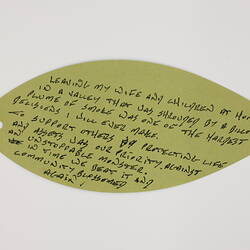 LEAVING MY WIFE AND CHILDREN AT HOME
IN A VALLEY THAT WAS SHROUDED BY A BILLOWING
PLUME OF SMOKE WAS ONE OF THE HARDEST
DECISIONS I WILL EVER MAKE.
TO SUPPORT OTHERS BY PROTECTING LIFE
AND ASSETS WAS OUR PRIORITY, AGAINST
AN UNSTOPPABLE MONSTER.
IN TIME WE BEAT IT AND
COMMUNITY BLOSSOMED
AGAIN!